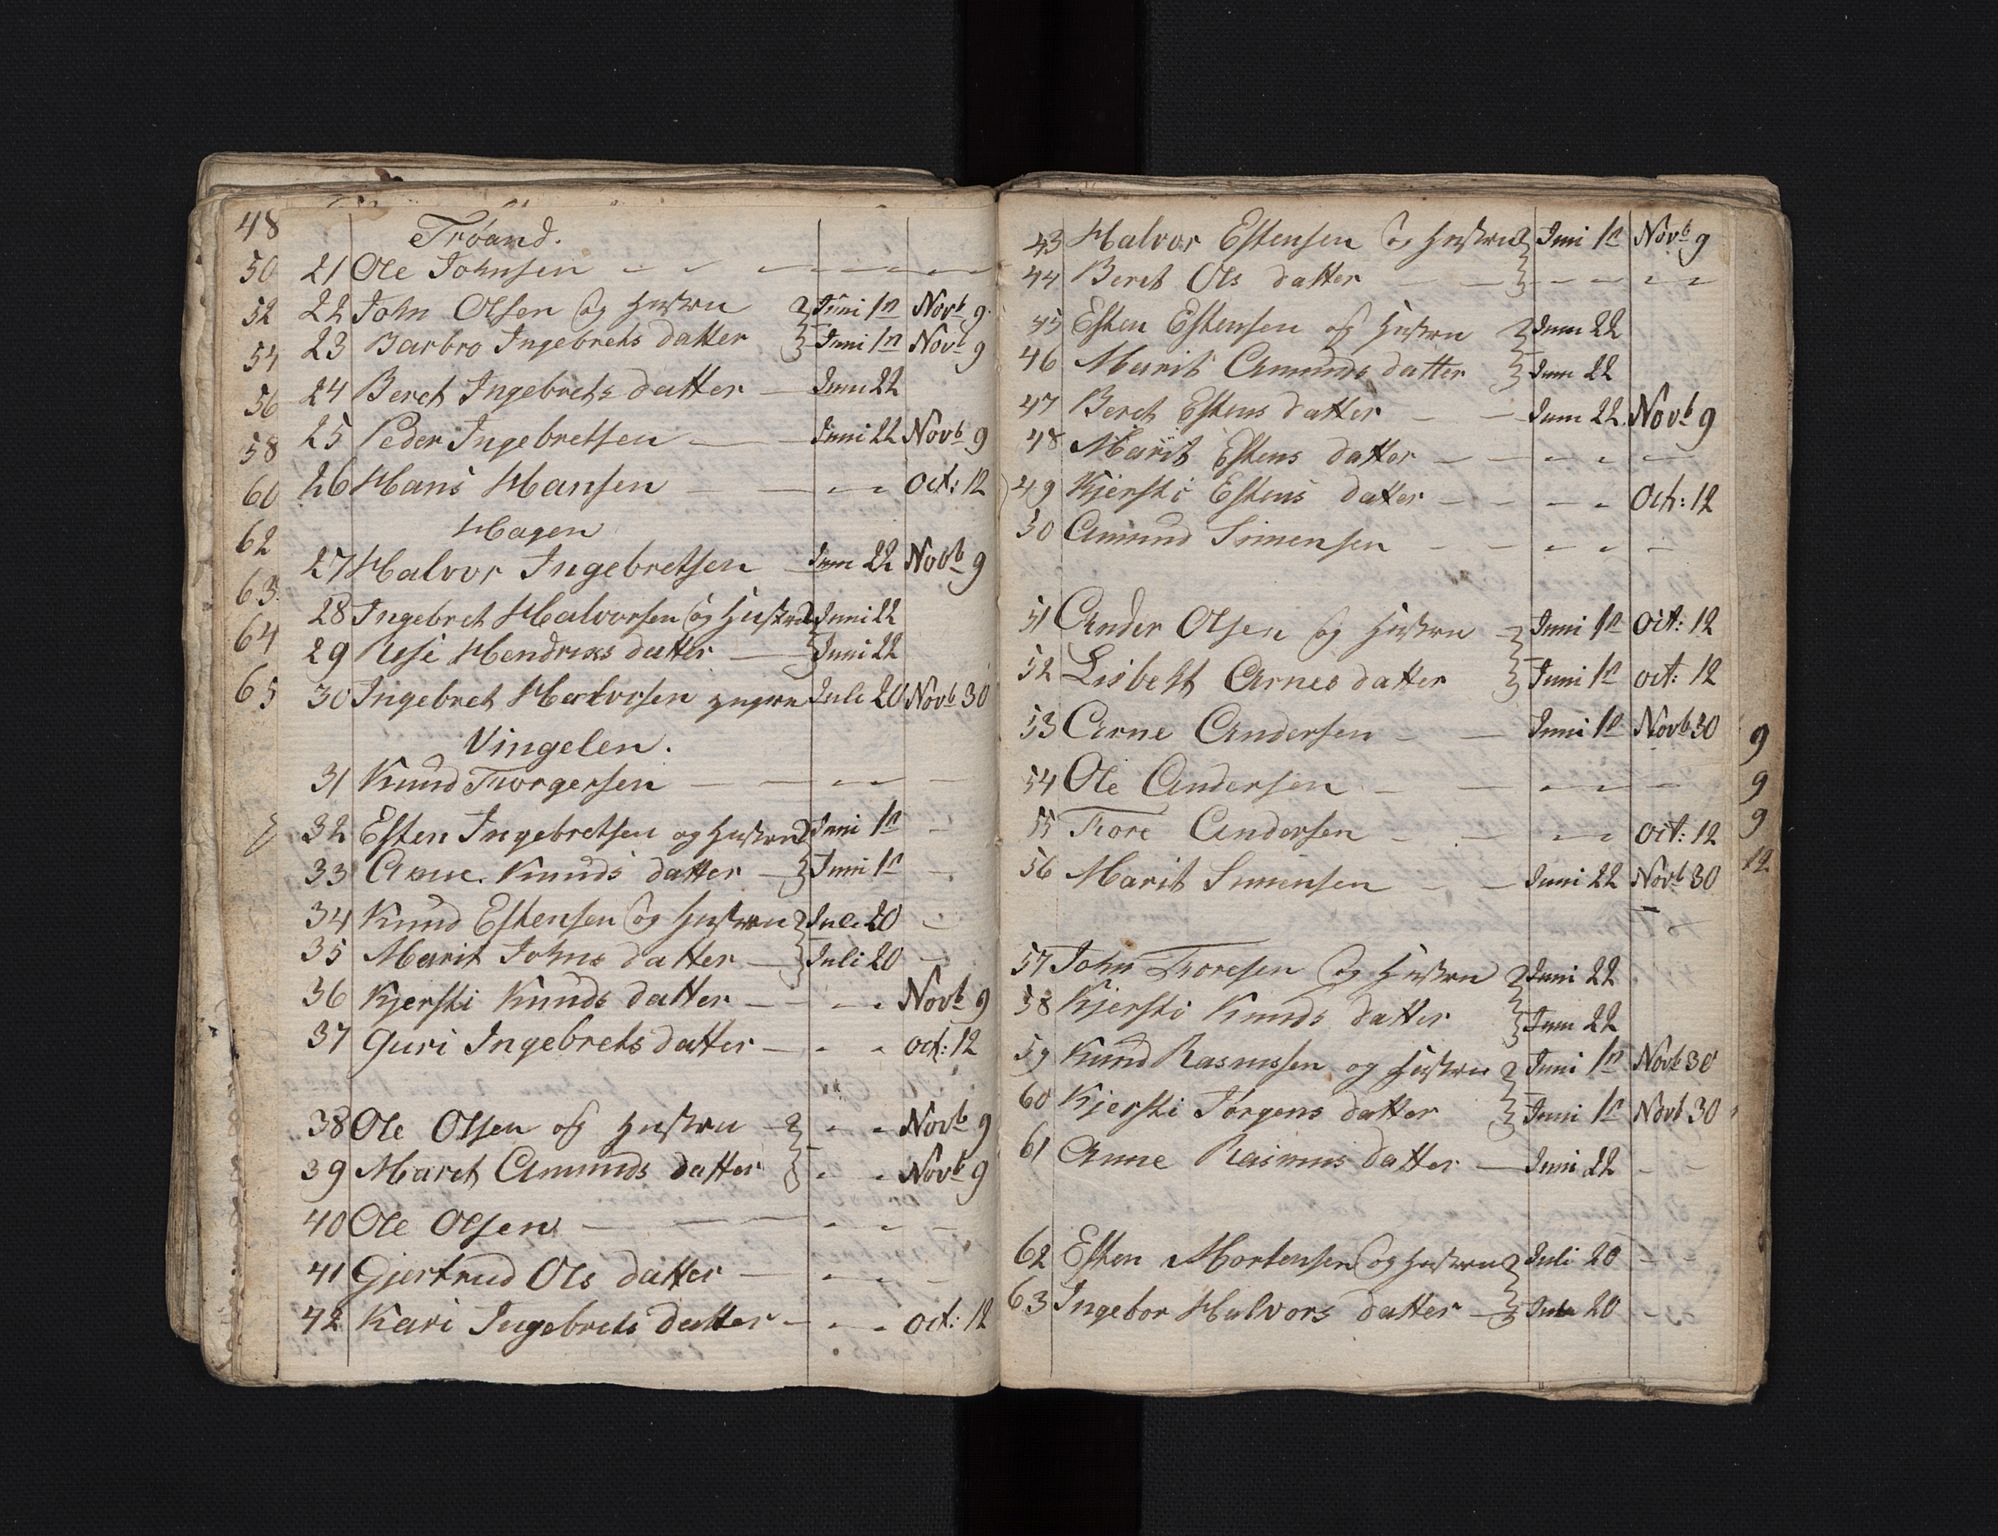 48
50
52
54
56
58
60
62
63
64
65
Trøand.
21 Ole Johnsen - - - - - -
22 John Olsen og Hustru Juni 1n Novb 9
23 Barbro Ingebrets datter Juni 1n Novb 9
24 Beret Ingebrets datter - Juni 22
25 Peder Ingebretsen - - Juni 22 Novb 9
26 Hans Hansen - - - - Oct: 12
Hagen
27 Halvor Ingebretsen - Juni 22 Novb 9
28 Ingebret Halvorsen og Hustru Juni 22
29 Resi Hendrixs datter - Juni 22
30 Ingebret Halvorsen yngre Juli 20 Novb 30
Vingelen.
31 Knud Torgersen - - - - -
32 Esten Ingebretsen og Hustru Juni 1n -
33 Anne Knuds datter - Juni 1n -
34 Knud Estensen og Hustru Juli 20 -
35 Marit Johns datter - Juli 20 -
36 Kjersti Knuds datter - - - Novb 9
37 Guri Ingebrets datter - - - oct: 12
38 Ole Olsen og Hustru - - - Novb 9
39 Maret Amunds datter - - Novb 9
40 Ole Olsen - - - - - -
41 Gjertrud Ols datter - - - -
42 Kari Ingebrets datter - - - oct: 12
43 Halvor Estensen og Hustru Juni 1n Novb 9
44 Beret Ols datter - - - - - -
45 Esten Estensen og Hustru Juni 22
46 Marit Amunds datter Juni 22
47 Beret Estens datter - - Juni 22 Novb 9
48 Marit Estens datter - - - - -
49 Kjersti Estens datter - - - - Oct: 12
50 Amund Simensen - - - - -
51 Ander Olsen og Hustru - Juni 1n Oct: 12
52 Lisbeth Arnes datter Juni 1n oct: 12
53 Arne Andersen - - Juni 1n Novb 30
54 Ole Andersen - - - - -
55 Tore Andersen - - - - oct: 12
56 Marit Simensen - - Juni 22 Novb 30
57 John Toresen og Hustru Juni 22
58 Kjersti Knuds datter Juni 22
59 Knud Rasmusen og Hustru Juni 1n Novb 30
60 Kjersti Jørgens datter Juni 1n Novb 30
61 Anne Rasmus datter - Juni 22 - -
62 Esten Mortensen og Hustru Juli 20 - -
63 Ingebor Halvors datter - Juli 20 -
9
9
9
12